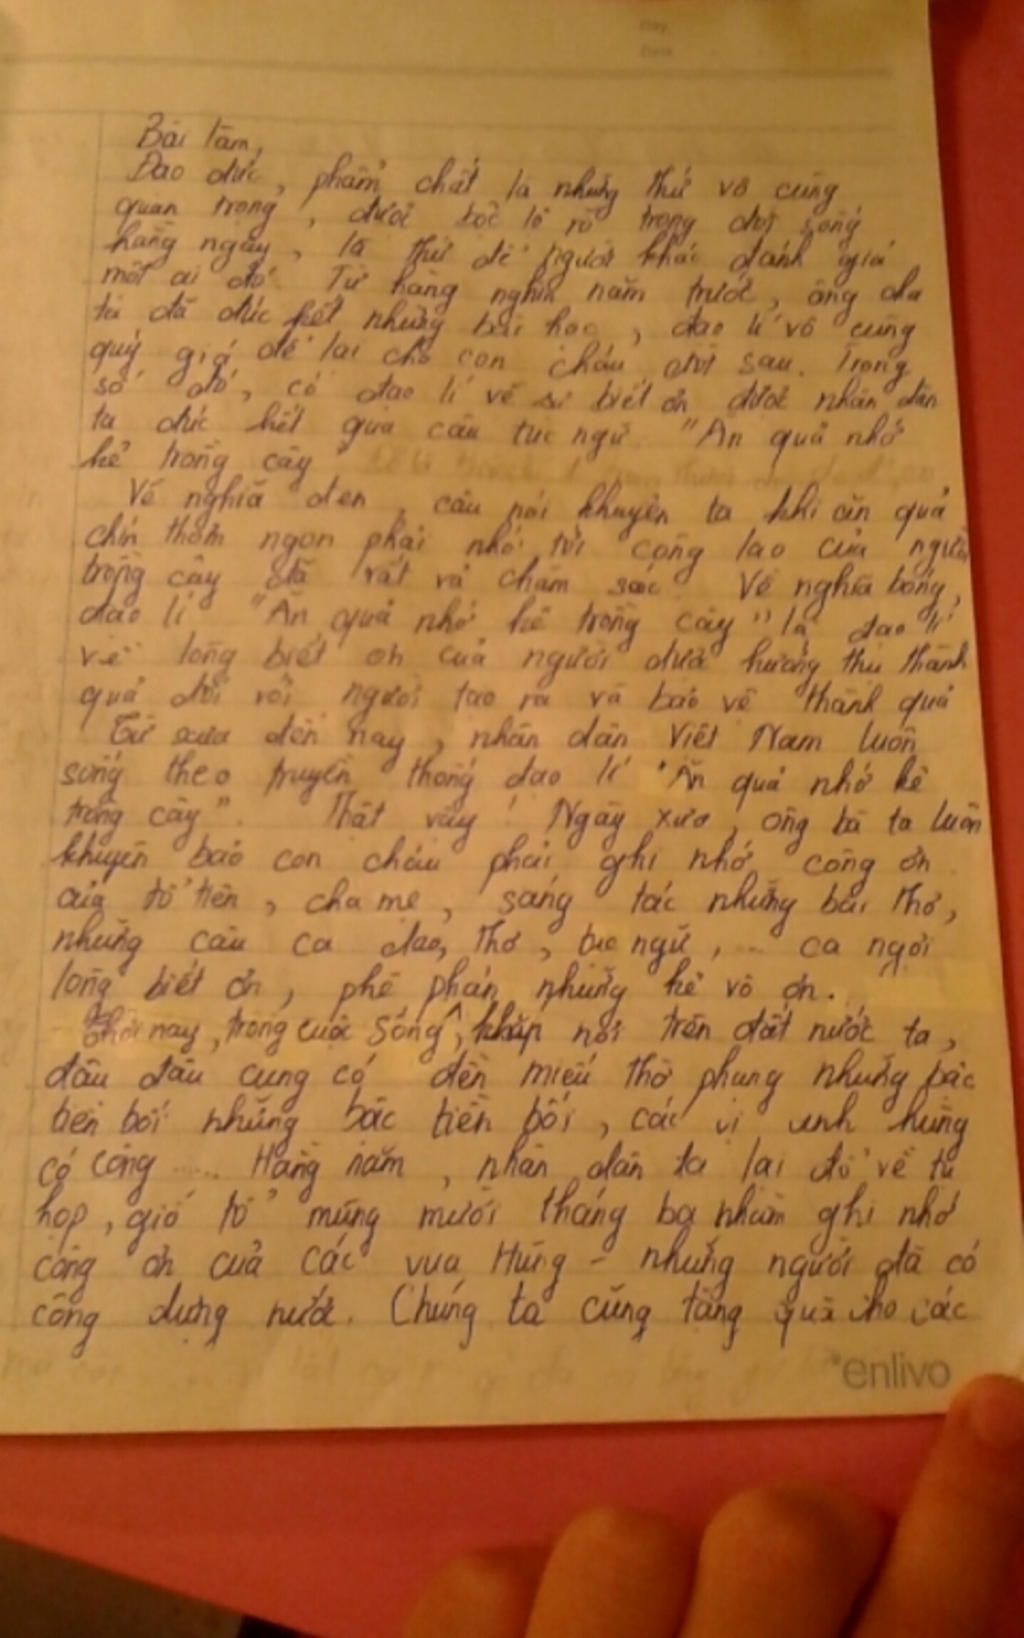 Day
Date
Bài làm,
Đạo đức, phẩm chất là những thứ vô cùng
quan trọng, được bộc lộ rõ trong đời sống
hằng ngày, là thứ để người khác đánh giá
một ai đó. Từ hàng nghìn năm trước, ông cha
ta đã đúc kết những bài học, đạo lí vô cùng
quý giá để lại cho con cháu đời sau. Trong
số đó, có đạo lí về sự biết ơn được nhân dân
ta đúc kết qua câu tục ngữ "Ăn quả nhớ
kẻ trồng cây
Về nghĩa đen, câu nói khuyên ta khi ăn quả
chín thơm ngon phải nhớ tới công lao của người
trồng cây đã vất vả chăm sóc. Về nghĩa bóng,
đạo lí "Ăn quả nhớ kẻ trồng cây" là đạo lí
về lòng biết ơn của người được hưởng thụ thành
quả đối với người tạo ra và bảo vệ thành quả
Từ xưa đến nay, nhân dân Việt Nam luôn
sống theo truyền thống đạo lí "Ăn quả nhớ kẻ
trồng cây". Thật vậy! Ngày xưa, ông bà ta luôn
khuyên bảo con cháu phải ghi nhớ công ơn
của tổ tiên, cha mẹ, sáng tác những bài thơ,
những câu ca dao, thơ, tục ngữ, ... ca ngợi
lòng biết ơn, phê phán những kẻ vô ơn.
Thời nay, trong cuộc sống, khắp nơi trên đất nước ta,
đâu đâu cũng có đền miếu thờ phụng những bậc
tiền bối những bậc tiền bối, các vị anh hùng
có công ..... Hằng năm, nhân dân ta lại đổ về tụ
họp, giỗ tổ mùng mười tháng ba nhằm ghi nhớ
công ơn của các vua Hùng - những người đã có
công dựng nước. Chúng ta cũng tặng quà cho các
enlivo